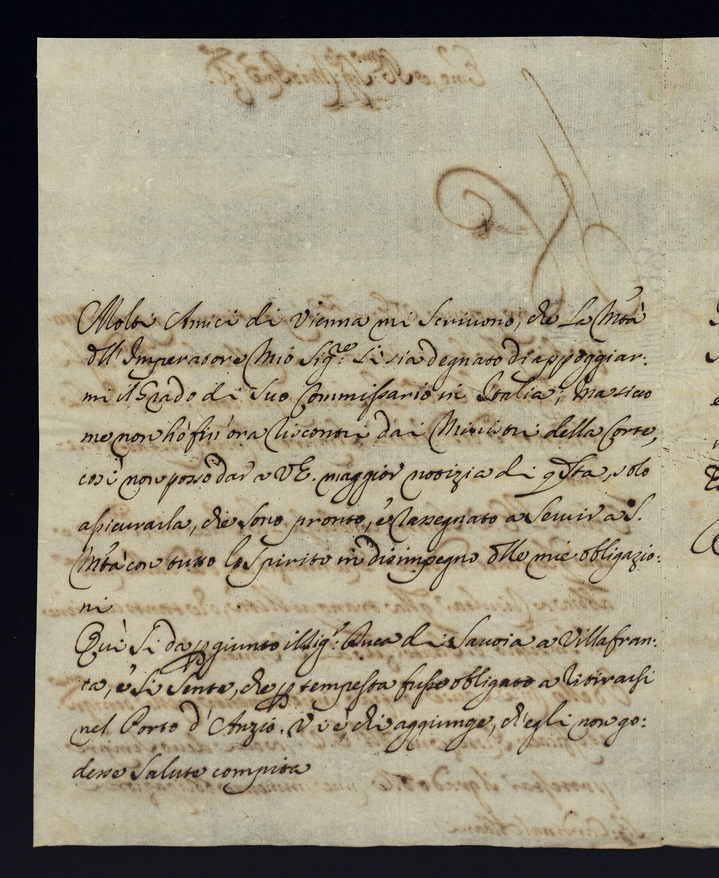 Molti Amici di Vienna mi Scrivono, che La Mtà
dll' Imperatore Mio Sigre si sia degnato di appoggiar:
mi il Grado di Suo Commissario in Italia; ma sicco
me non hò fin' ora riscontri dai Ministri della Corte,
così non posso dar' a V.E. maggior notizia di qsta, solo
assicurarla, che sono pronto, e rassegnato a Servir a S.
Mtà con tutto lo Spirito in disimpegno dlle mie obligazio:
ni
Quì Si dà p giunto il Sigr Duca di Savoia a Villafran:
ca, e si Sente, che p tempesta fusse obligato a ritirarsi
nel Porto d'Anzio. Vi è chi aggiunge, ch'egli non go:
desse Salute compita